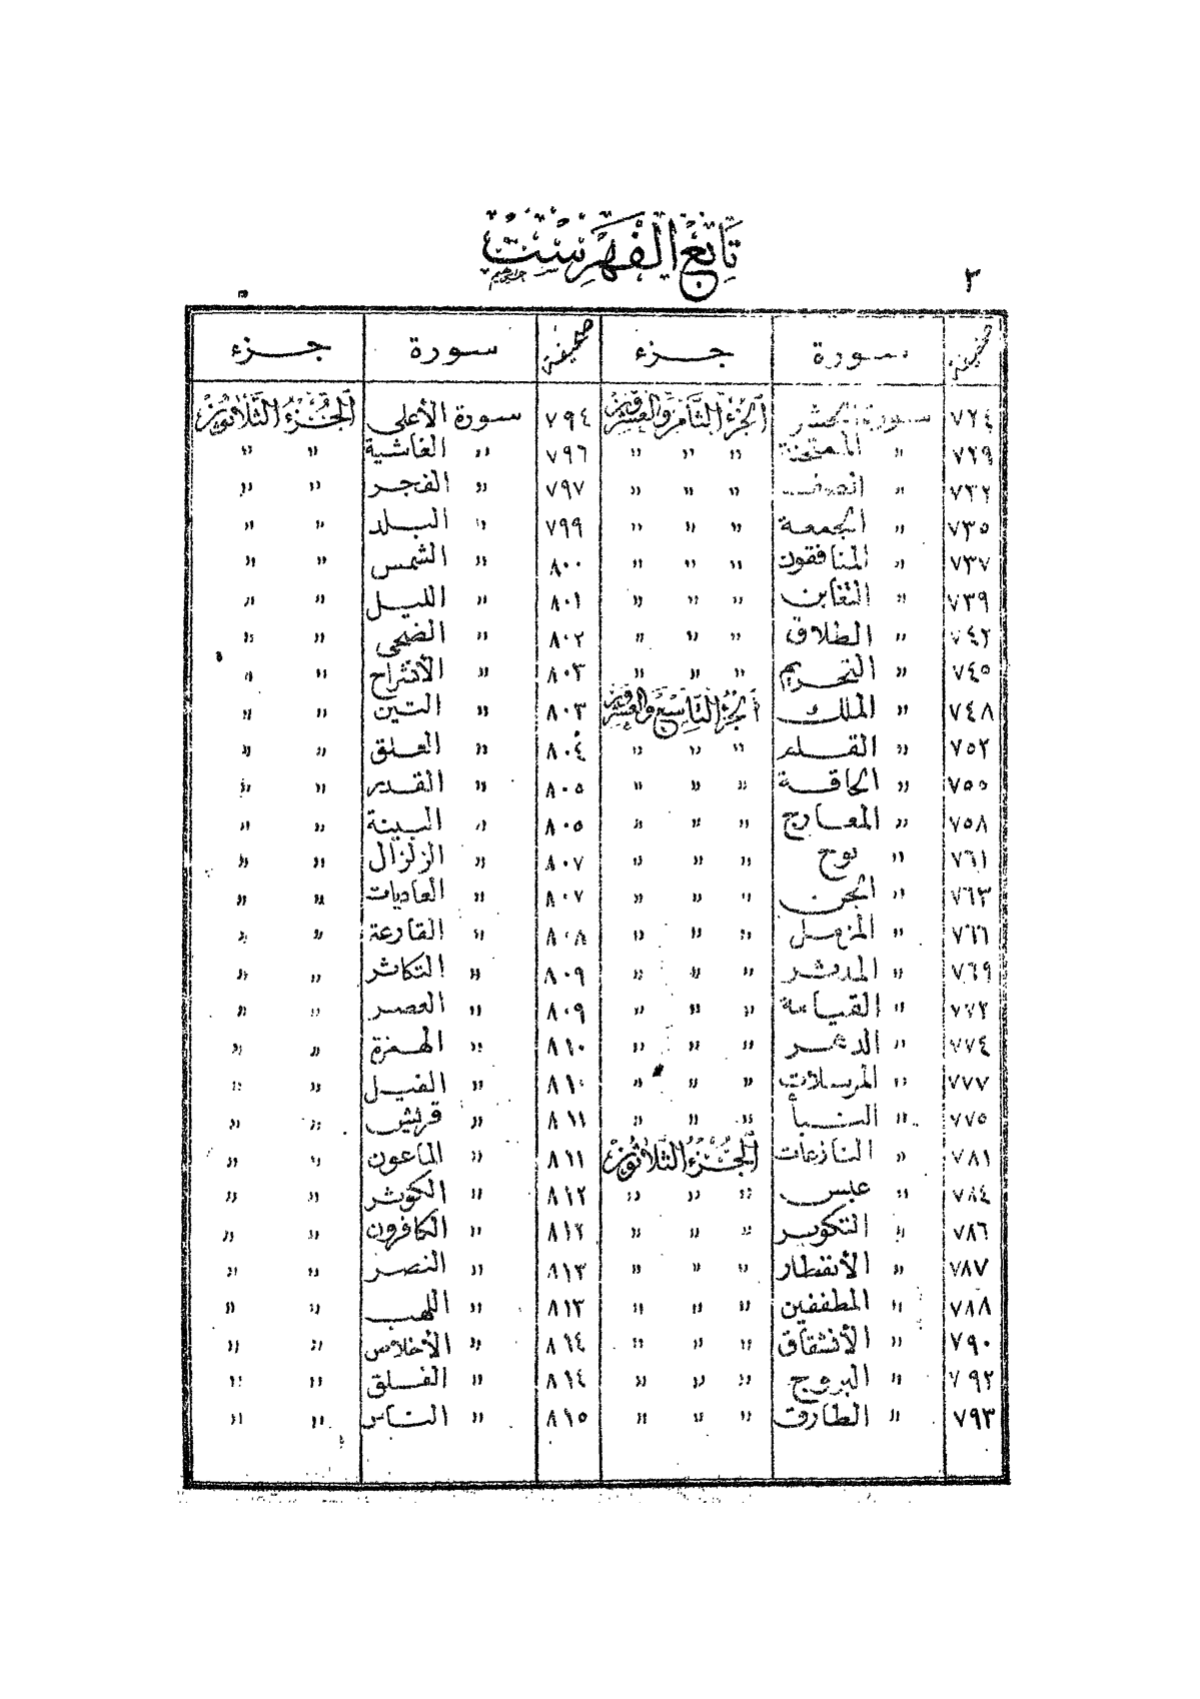 تَابِعُ الْفَهْرِسْت
٣
صحيفة سورة جزء صحيفة سورة جزء
٧٢٤ سورة الحشر الجزء الثامن والعشرون ٧٩٤ سورة الأعلى الجزء الثلاثون
٧٢٩ " الممتحنة " " " ٧٩٦ " الغاشية " "
٧٣٢ " الصف " " " ٧٩٧ " الفجر " "
٧٣٥ " الجمعة " " " ٧٩٩ " البلد " "
٧٣٧ " المنافقون " " " ٨٠٠ " الشمس " "
٧٣٩ " التغابن " " " ٨٠١ " الليل " "
٧٤٢ " الطلاق " " " ٨٠٢ " الضحى " "
٧٤٥ " التحريم " " " ٨٠٣ " الأنشراح " "
٧٤٨ " الملك الجزء التاسع والعشرون ٨٠٣ " التين " "
٧٥٢ " القلم " " " ٨٠٤ " العلق " "
٧٥٥ " الحاقة " " " ٨٠٥ " القدر " "
٧٥٨ " المعارج " " " ٨٠٥ " البينة " "
٧٦١ " نوح " " " ٨٠٧ " الزلزال " "
٧٦٣ " الجن " " " ٨٠٧ " العاديات " "
٧٦٦ " المزمل " " " ٨٠٨ " القارعة " "
٧٦٩ " المدثر " " " ٨٠٩ " التكاثر " "
٧٧٢ " القيامة " " " ٨٠٩ " العصر " "
٧٧٤ " الدهر " " " ٨١٠ " الهمزة " "
٧٧٧ " المرسلات " " " ٨١٠ " الفيل " "
٧٧٥ " النبأ " " " ٨١١ " قريش " "
٧٨١ " النازعات الجزء الثلاثون ٨١١ " الماعون " "
٧٨٤ " عبس " " " ٨١٢ " الكوثر " "
٧٨٦ " التكوير " " " ٨١٢ " الكافرون " "
٧٨٧ " الأنفطار " " " ٨١٣ " النصر " "
٧٨٨ " المطففين " " " ٨١٣ " اللهب " "
٧٩٠ " الأنشقاق " " " ٨١٤ " الأخلاص " "
٧٩٢ " البروج " " " ٨١٤ " الفلق " "
٧٩٣ " الطارق " " " ٨١٥ " الناس " "